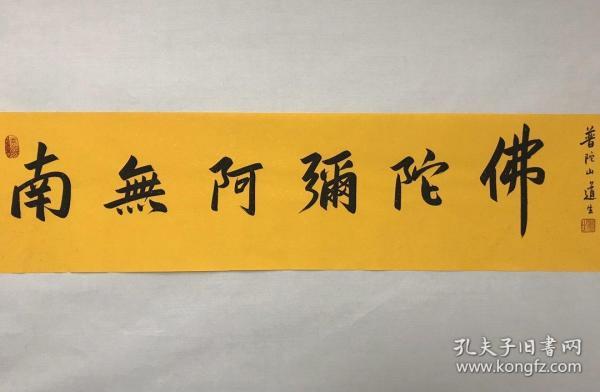 南無阿彌陀佛
普陀山道生
孔夫子旧书网
www.kongfz.com